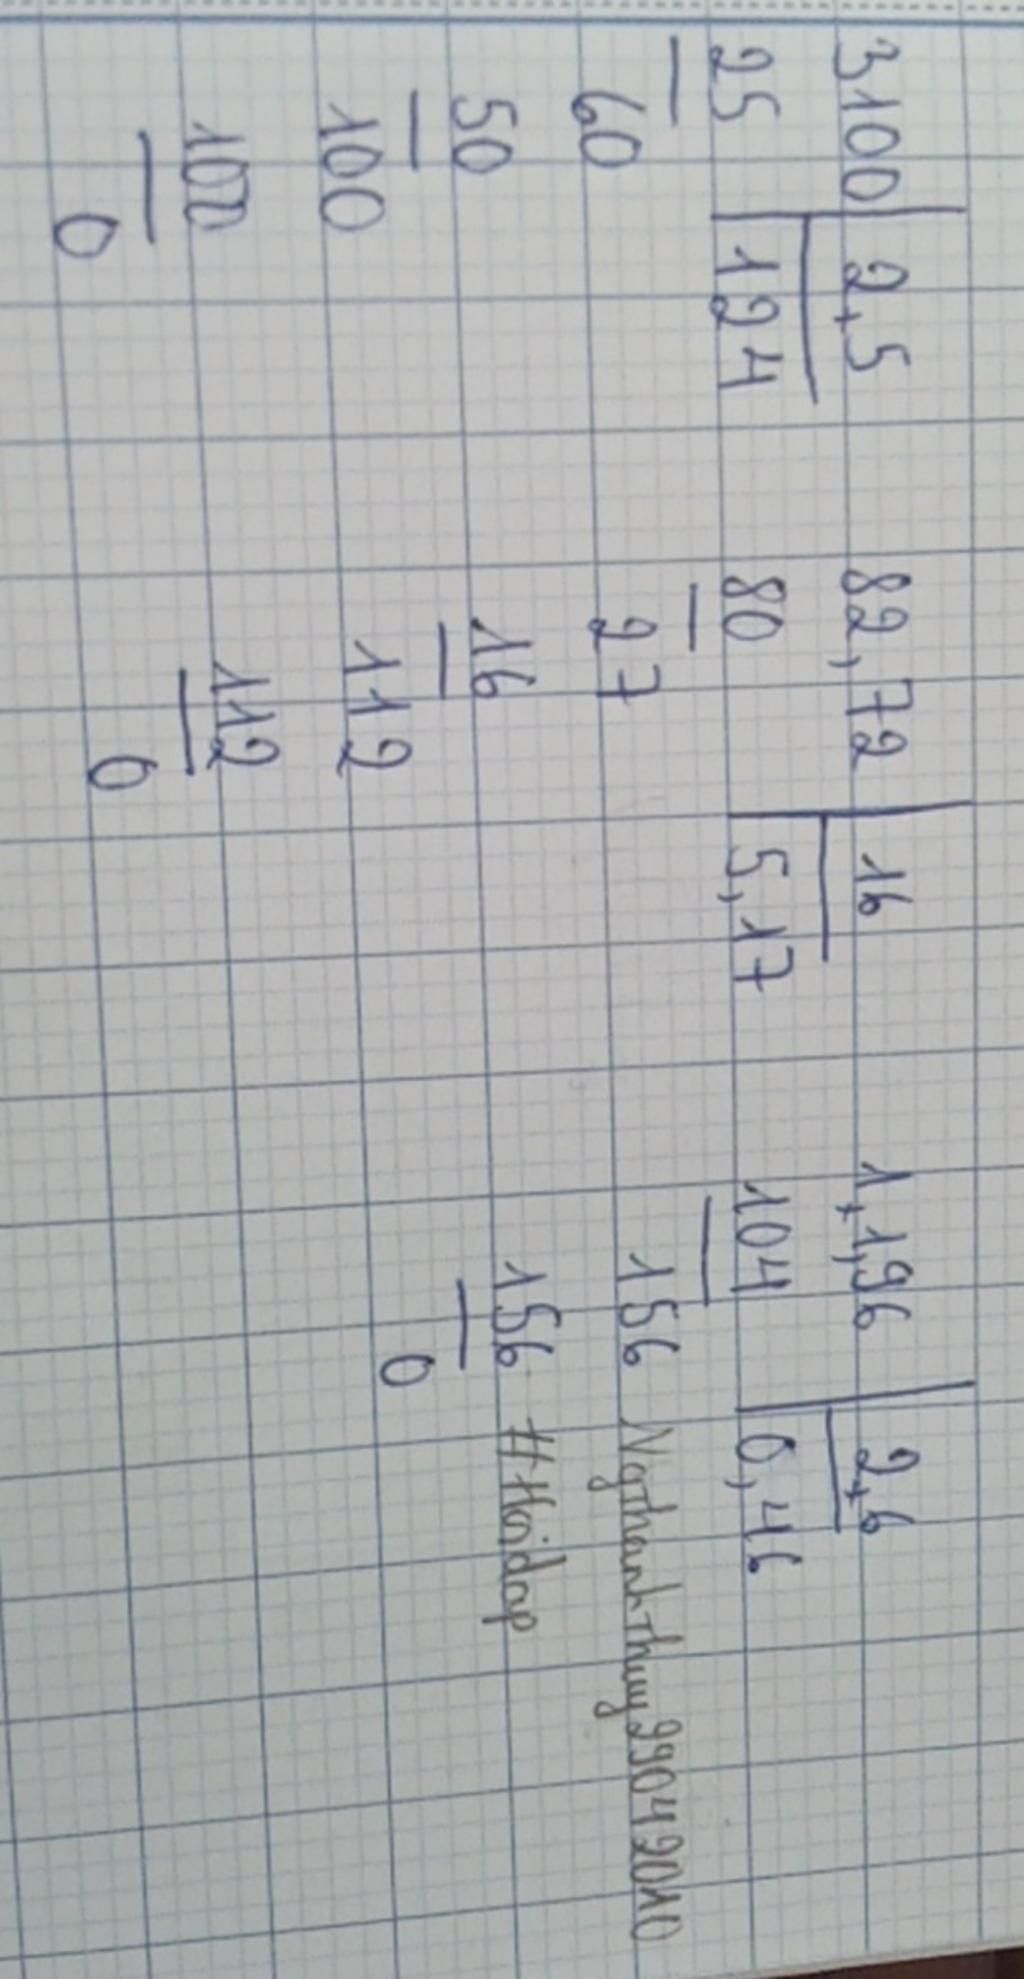 3100 2,5
25 124
60
50
100
100
0
82,72 16
80 5,17
27
16
112
112
0
1,1,96 2,6
104 0,46
156
156
0
NgthanhThuy29042010
#Hoidap